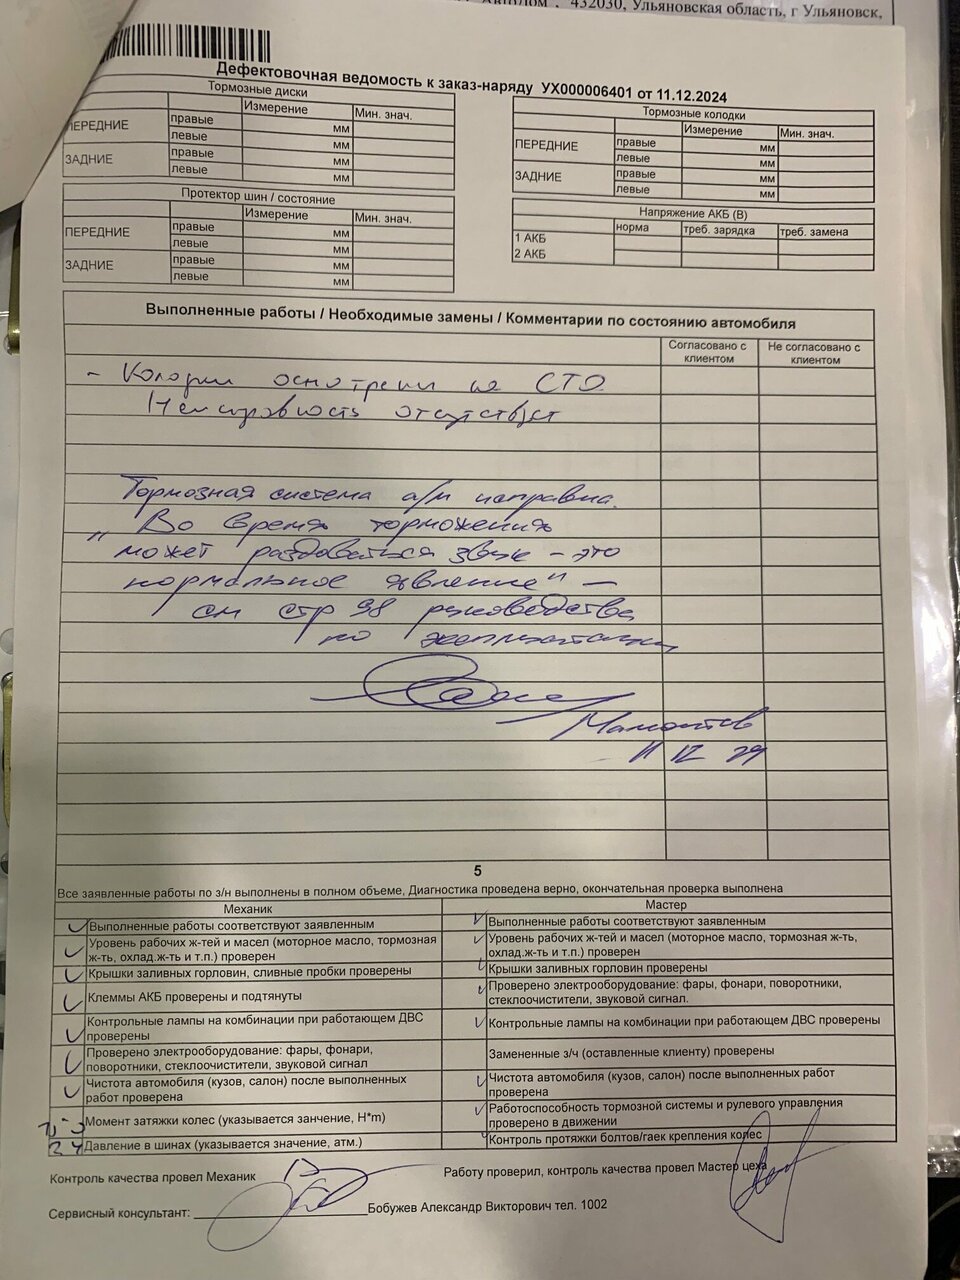 432030, Ульяновская область, г Ульяновск,
Дефектовочная ведомость к заказ-наряду УХ000006401 от 11.12.2024
Тормозные диски
Измерение Мин. знач.
ПЕРЕДНИЕ правые мм
левые мм
ЗАДНИЕ правые мм
левые мм
Тормозные колодки
Измерение Мин. знач.
ПЕРЕДНИЕ правые мм
левые мм
ЗАДНИЕ правые мм
левые мм
Протектор шин / состояние
Измерение Мин. знач.
ПЕРЕДНИЕ правые мм
левые мм
ЗАДНИЕ правые мм
левые мм
Напряжение АКБ (В)
норма треб. зарядка треб. замена
1 АКБ
2 АКБ
Выполненные работы / Необходимые замены / Комментарии по состоянию автомобиля
Согласовано с клиентом
Не согласовано с клиентом
- Колодки осмотрены на СТО
Неисправность отсутствует
Тормозная система а/м исправна.
„Во время торможения
может раздаваться звук - это
нормальное явление" —
см стр 98 руководства
по эксплуатации
Мамонтов
11 12 24
5
Все заявленные работы по з/н выполнены в полном объеме, Диагностика проведена верно, окончательная проверка выполнена
Механик
Выполненные работы соответствуют заявленным
Уровень рабочих ж-тей и масел (моторное масло, тормозная
ж-ть, охлад.ж-ть и т.п.) проверен
Крышки заливных горловин, сливные пробки проверены
Клеммы АКБ проверены и подтянуты
Контрольные лампы на комбинации при работающем ДВС
проверены
Проверено электрооборудование: фары, фонари,
поворотники, стеклоочистители, звуковой сигнал
Чистота автомобиля (кузов, салон) после выполненных
работ проверена
Момент затяжки колес (указывается занчение, Н*m)
2 4 Давление в шинах (указывается значение, атм.)
Мастер
Выполненные работы соответствуют заявленным
Уровень рабочих ж-тей и масел (моторное масло, тормозная ж-ть,
охлад.ж-ть и т.п.) проверен
Крышки заливных горловин проверены
Проверено электрооборудование: фары, фонари, поворотники,
стеклоочистители, звуковой сигнал.
Контрольные лампы на комбинации при работающем ДВС проверены
Замененные з/ч (оставленные клиенту) проверены
Чистота автомобиля (кузов, салон) после выполненных работ
проверена
Работоспособность тормозной системы и рулевого управления
проверено в движении
Контроль протяжки болтов/гаек крепления колес
Контроль качества провел Механик
Работу проверил, контроль качества провел Мастер цеха
Сервисный консультант: Бобужев Александр Викторович тел. 1002